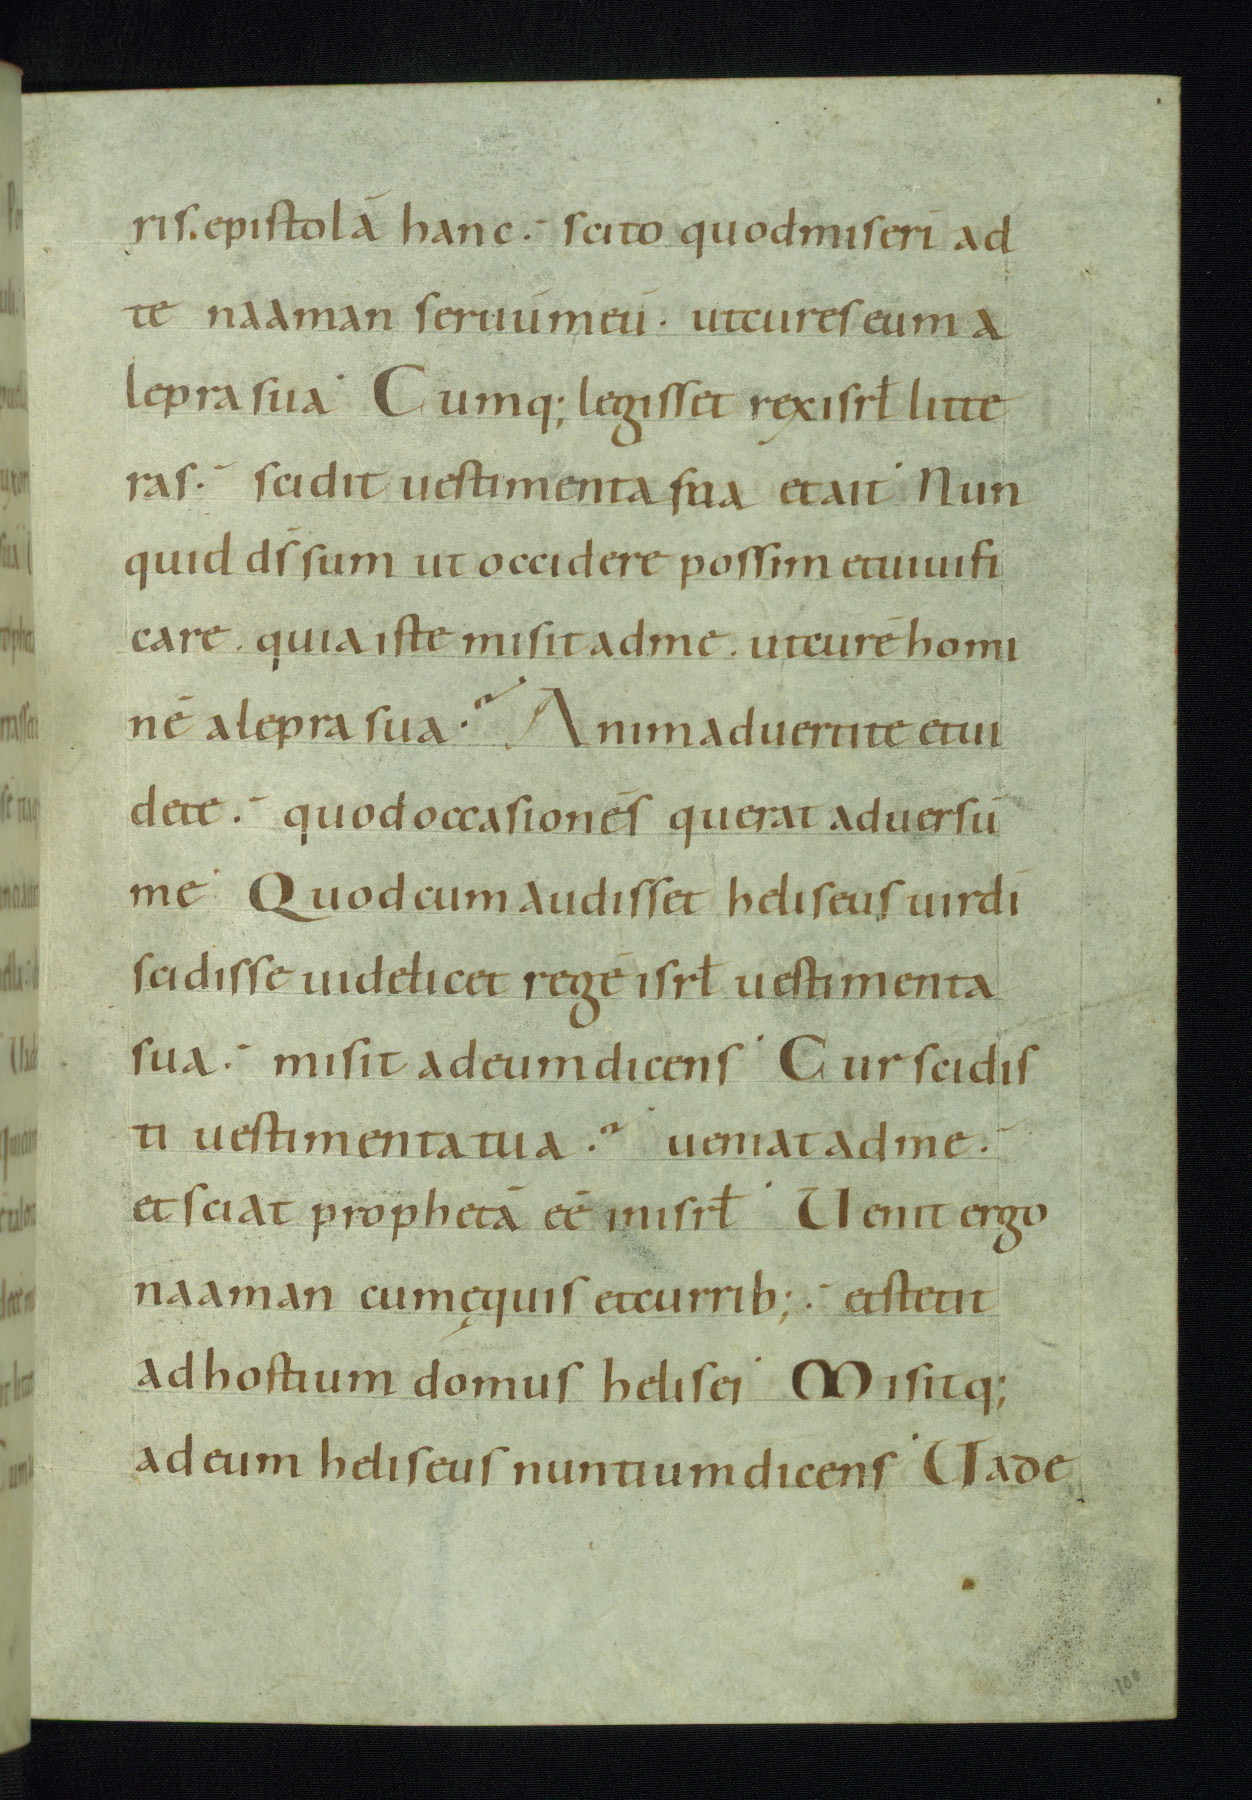 ris. epistolā hanc. scito quod miseri ad
te naaman seruū meū. ut cures eum a
lepra sua. Cumq; legisset rex isrł litte
ras. scidit uestimenta sua et ait. Nun
quid ds̄ sum ut occidere possim et uiuifi
care. quia iste misit ad me. ut curē homi
nē a lepra sua. Animaduertite et ui
dete. quod occasionēs querat aduersū
me. Quod cum audisset heliseus uir dī
scidisse uidelicet regē isrł uestimenta
sua. misit ad eum dicens. Cur scidis
ti uestimenta tua. ueniat ad me.
et sciat prophetā eē in isrł. Uenit ergo
naaman cum ęquis et currib;. et stetit
ad hostium domus helisei. Misitq;
ad eum heliseus nuntium dicens. Uade